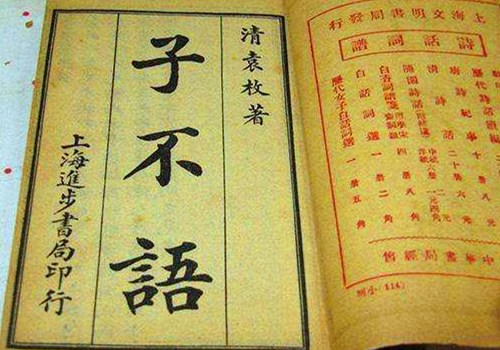 清袁枚著
子不語
上海進步書局印行
上海文明書局發行
詩話詞譜
歷代詩話
唐詩紀事
清詩話
隨園詩話
白香詞譜箋
白話詞選 一册二角
歷代女子白話詞選 一册五角
中華書局經售
(114)